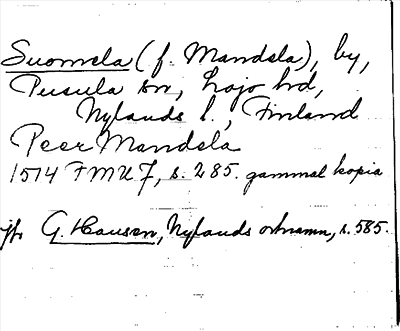 Suomela (f. Mandela), by,
Pusula sn, Lojo hd,
Nylands l., Finland
Peer Mandela
1514 FMU 7, s. 285. gammal kopia
jfr G. Hausen, Nylands ortnamn, s. 585.